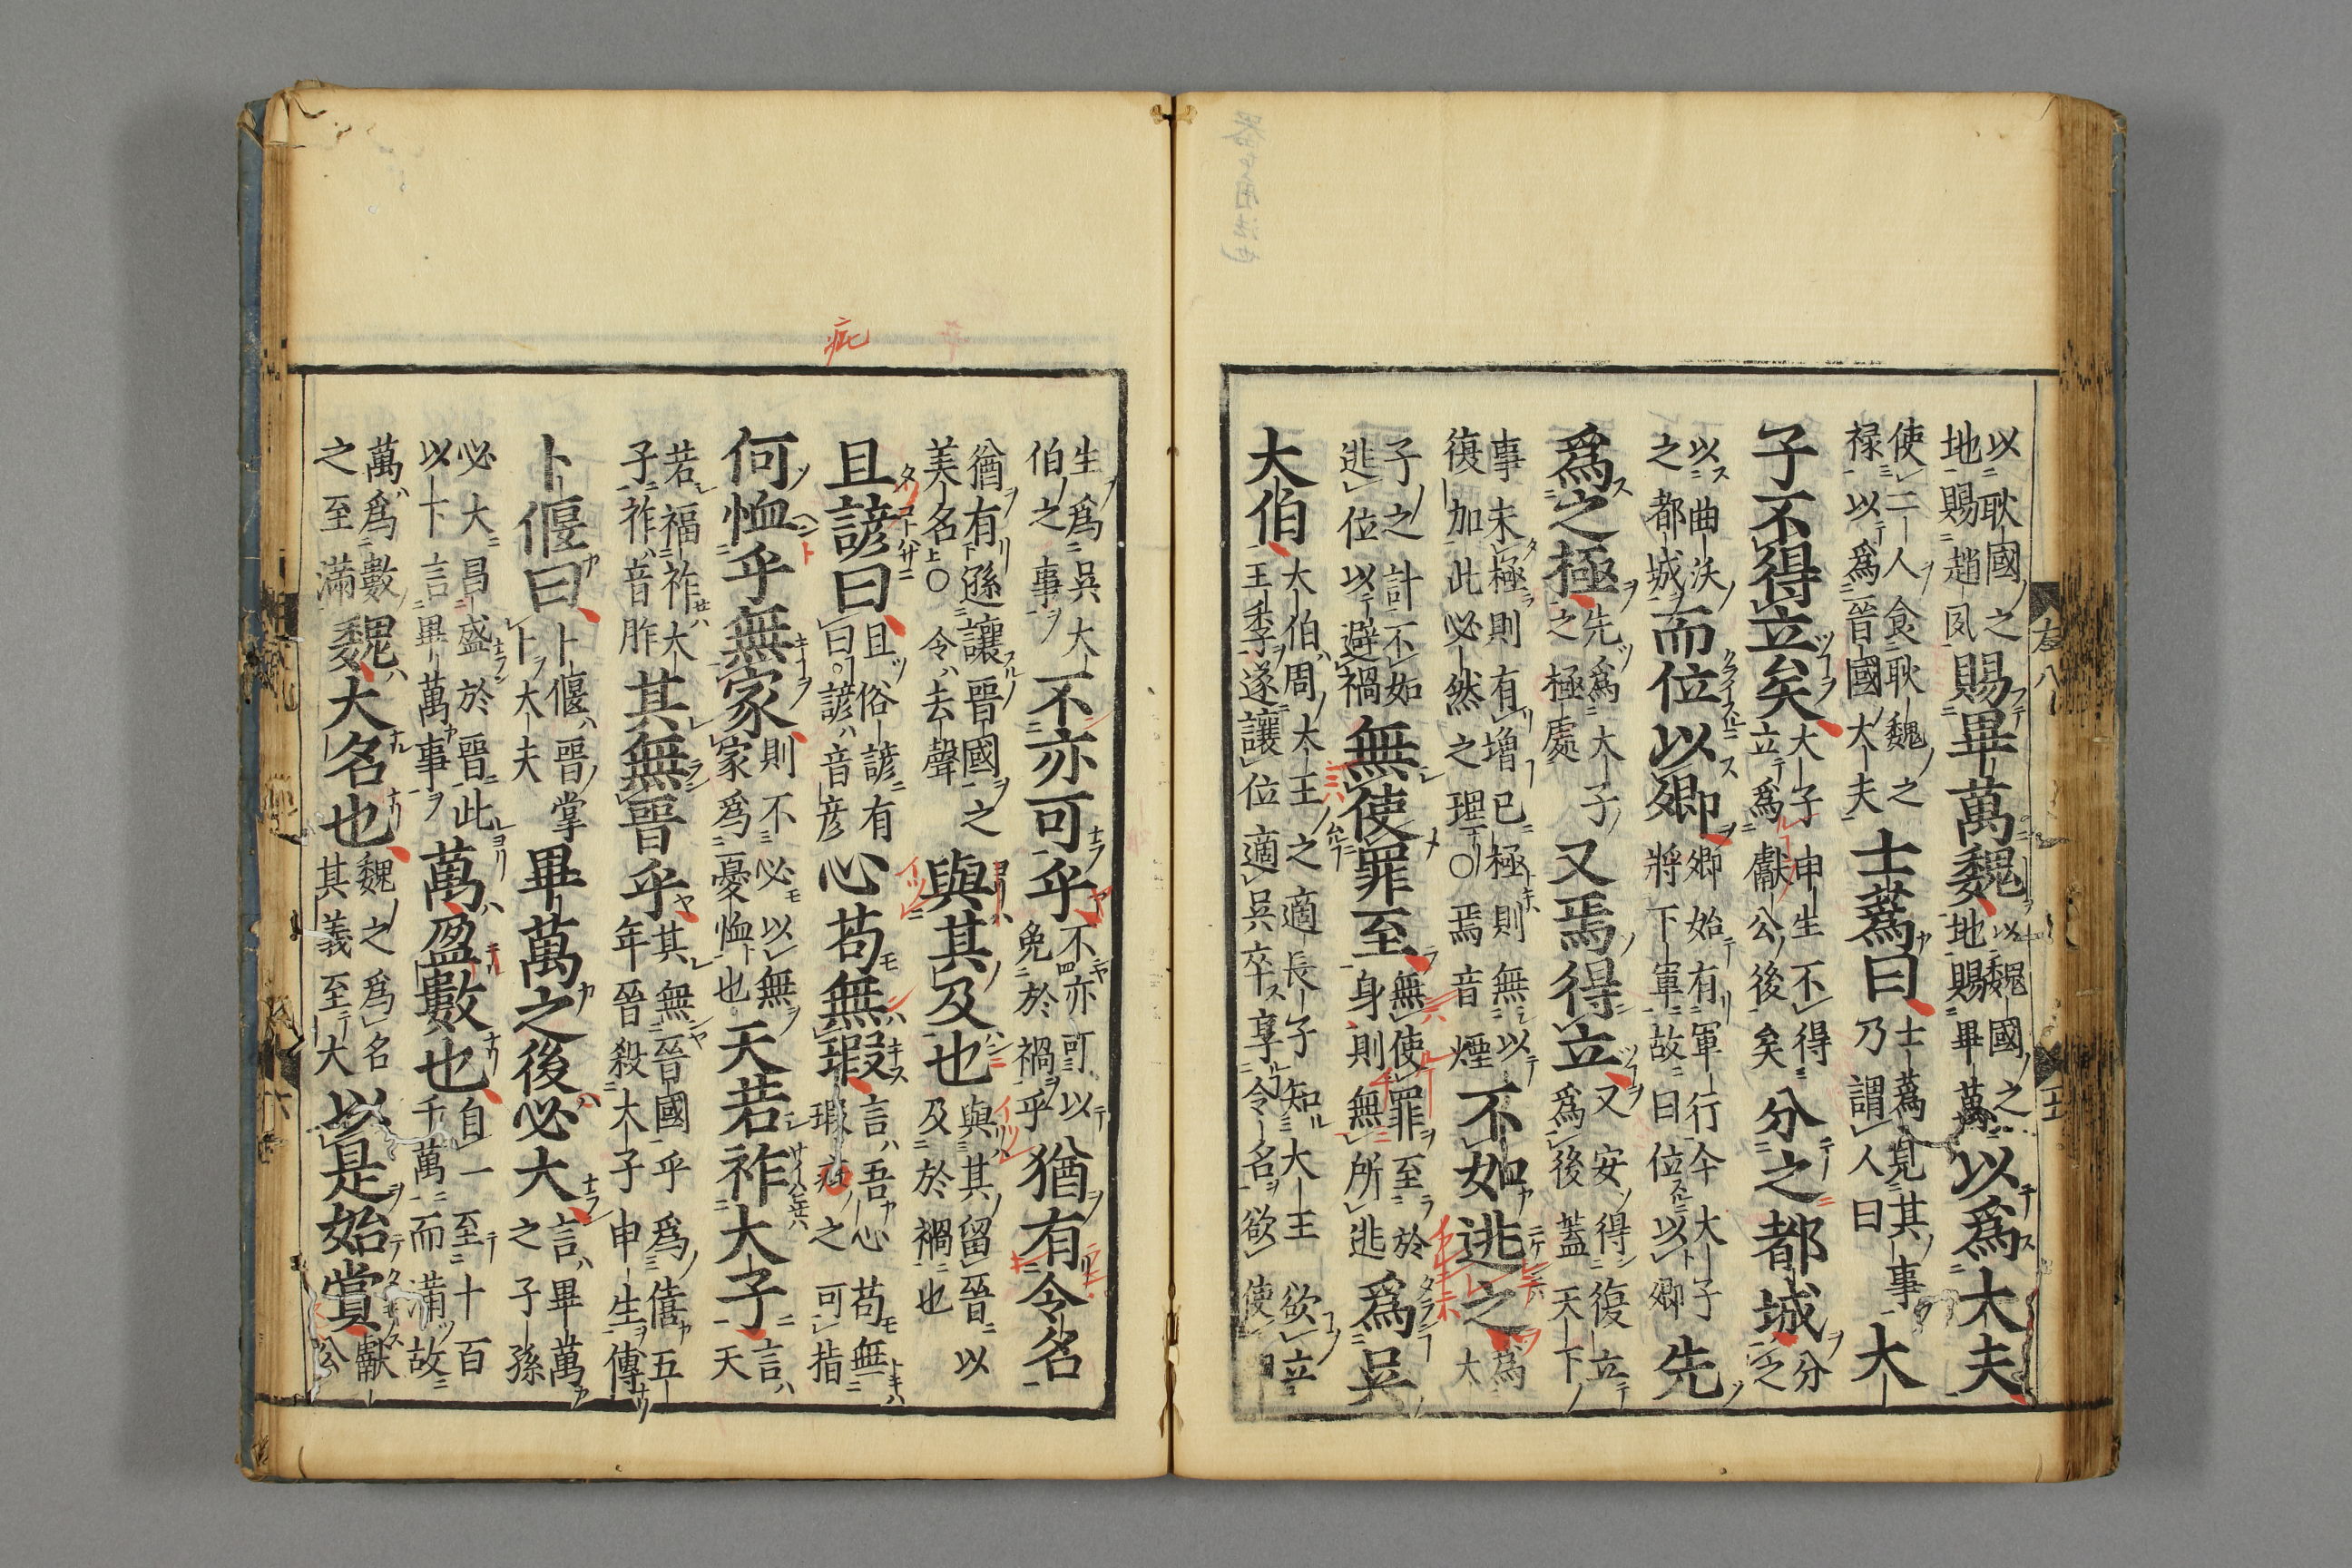 左八
以耿國之地賜趙夙賜畢萬魏以魏國之地賜畢萬以爲大夫
使二人食耿魏之禄以爲晉國大夫士蒍曰士蒍見其事乃謂人曰大
子不得立矣大子申生不得立爲獻公後矣分之都城分之
以曲沃之都城而位以卿卿始有軍行今大子將下軍故曰位以卿先
爲之極先爲大子之極處又焉得立又安得復立爲後蓋天下
事未極則有增已極則無以復加此必然之理○焉音煙不如逃之爲大
子之計不如逃位以避禍無使罪至無使罪至於身則無所逃爲吳
大伯大伯周大王之適長子知大王欲立王季遂讓位適吳卒享令名欲使申
疵
生爲吳大伯之事不亦可乎不亦可以免於禍乎猶有令名
猶有遜讓晉國之美名○令去聲與其及也與其留晉以及於禍也
且諺曰且俗諺有曰諺音彦心苟無瑕言吾心苟無瑕疵之可指
何恤乎無家則不必以無家爲憂恤也天若祚大子言天
若福祚大子祚音胙其無晉乎其無晉國乎爲僖五年晉殺大子申生傳
卜偃曰卜偃晉掌卜大夫畢萬之後必大言畢萬之子孫
必大昌盛於晉此以卜言畢萬事萬盈數也自一至十百千萬而滿故
萬爲數之至滿魏大名也魏之爲名其義至大以是始賞獻公